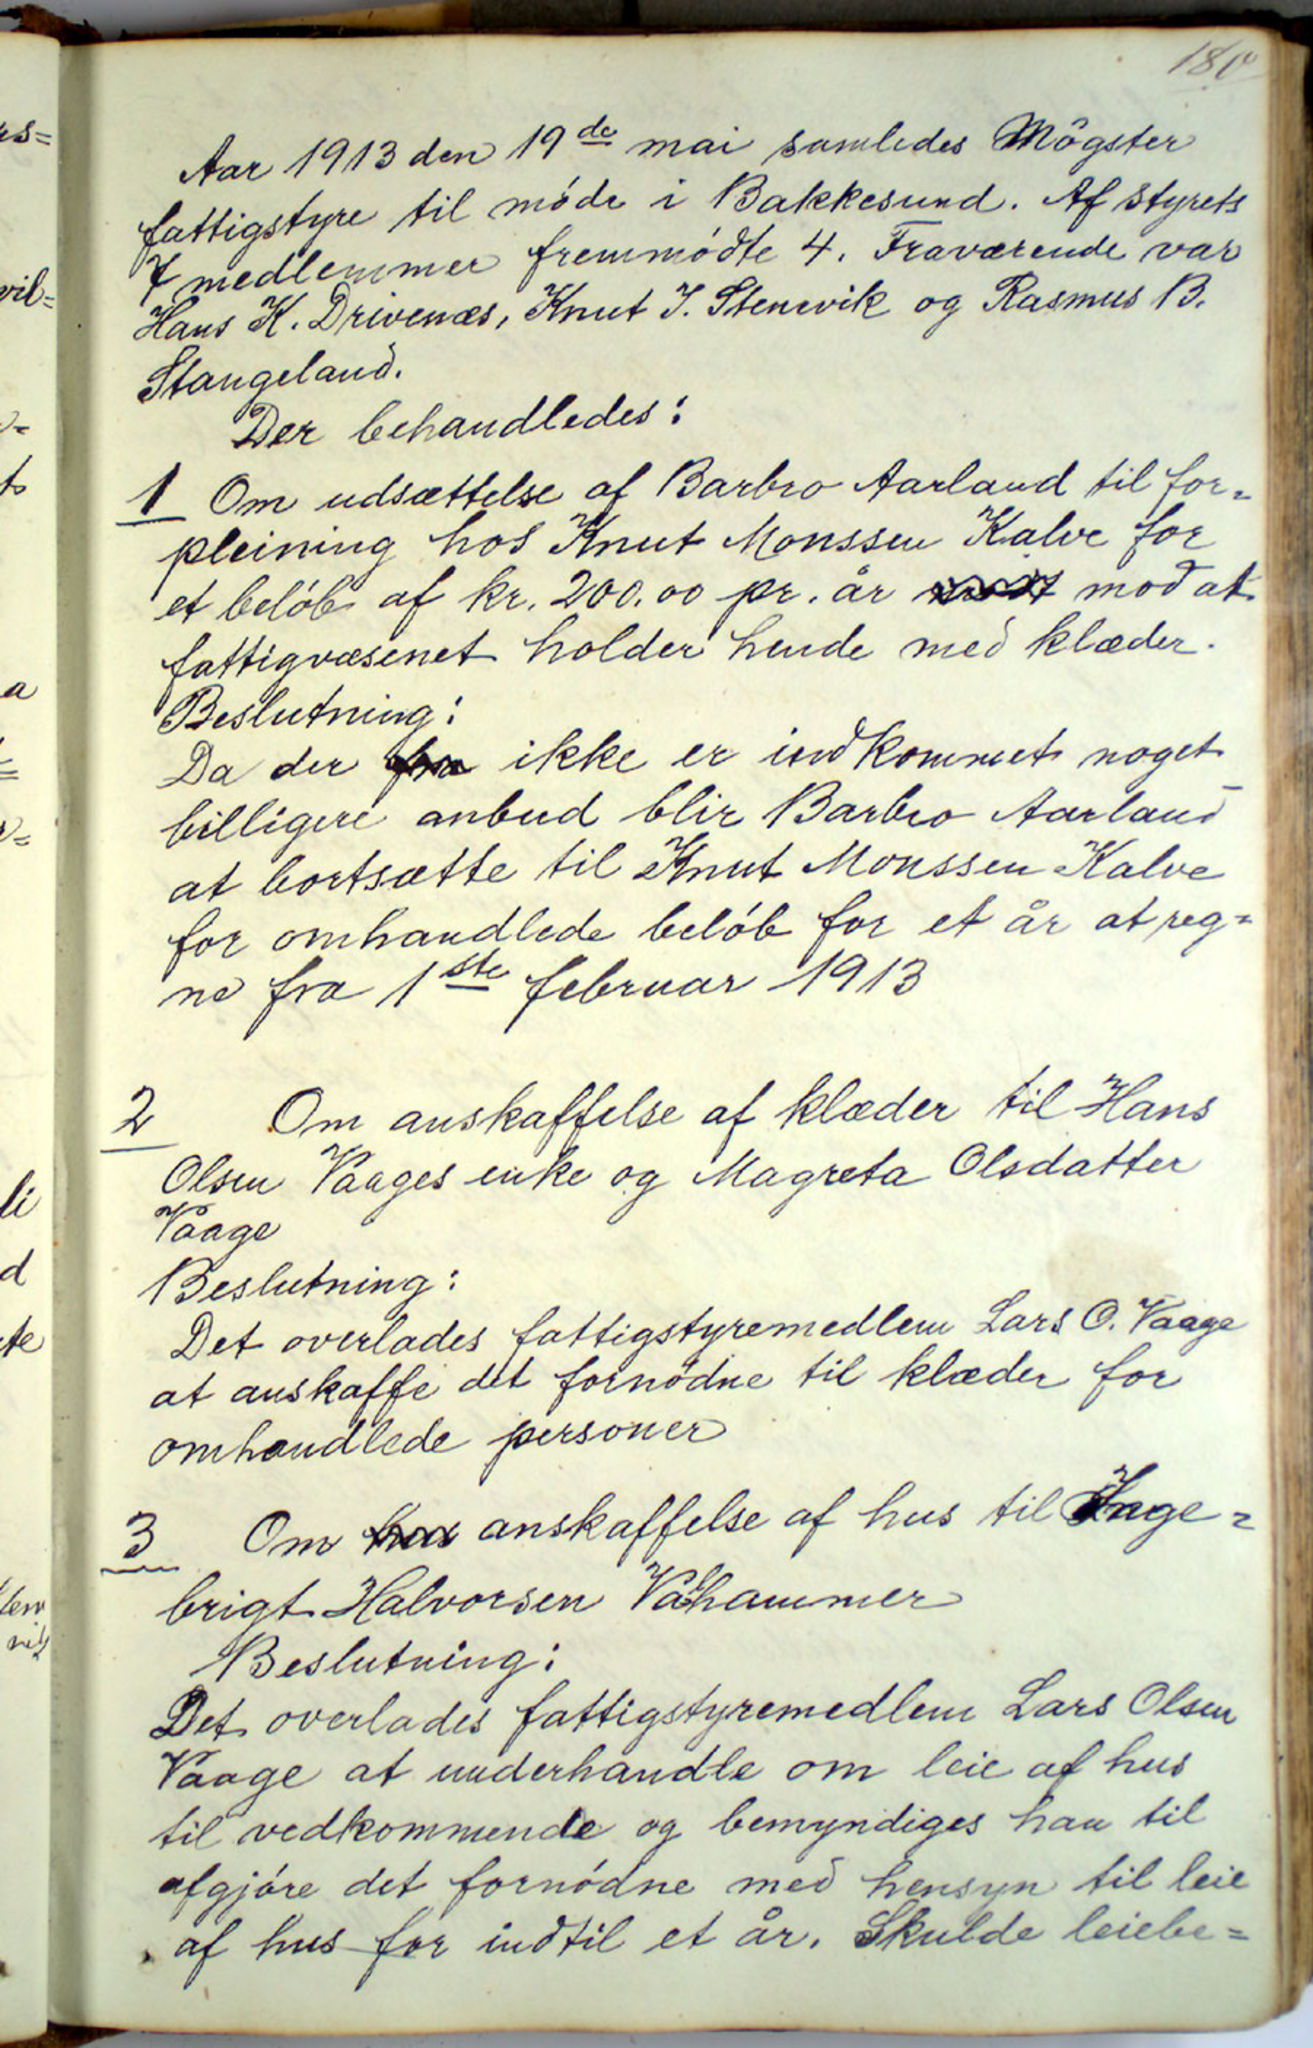 180
Aar 1913 den 19de mai samledes Møgster
fattigstyre til møde i Bakkesund. Af styrets
7 medlemmer fremmødte 4. Fraværende var
Hans K. Drivenæs, Knut J. Stenevik og Rasmus B.
Stangeland.
Der behandledes:
1 Om udsættelse af Barbro Aarland til for=
pleining hos Knut Monssen Kalve for
et beløb af kr. 200.00 pr. år mod at
fattigvæsenet holder hende med klæder.
Beslutning:
Da der fra ikke er indkommet noget
billigere anbud blir Barbro Aarland
at bortsætte til Knut Monssen Kalve
for omhandlede beløb for et år at reg=
ne fra 1ste februar 1913
2 Om anskaffelse af klæder til Hans
Olsen Vaages enke og Magreta Olsdatter
Vaage
Beslutning:
Det overlades fattigstyremedlem Lars O. Vaage
at anskaffe det fornødne til klæder for
omhandlede personer
3 Om hus anskaffelse af hus til Inge=
brigt Halvorsen
Beslutning:
Det overlades fattigstyremedlem Lars Olsen
Vaage at underhandle om leie af hus
til vedkommende og bemyndiges han til
afgjøre det fornødne med hensyn til leie
af hus for indtil et år. Skulde leiebe=